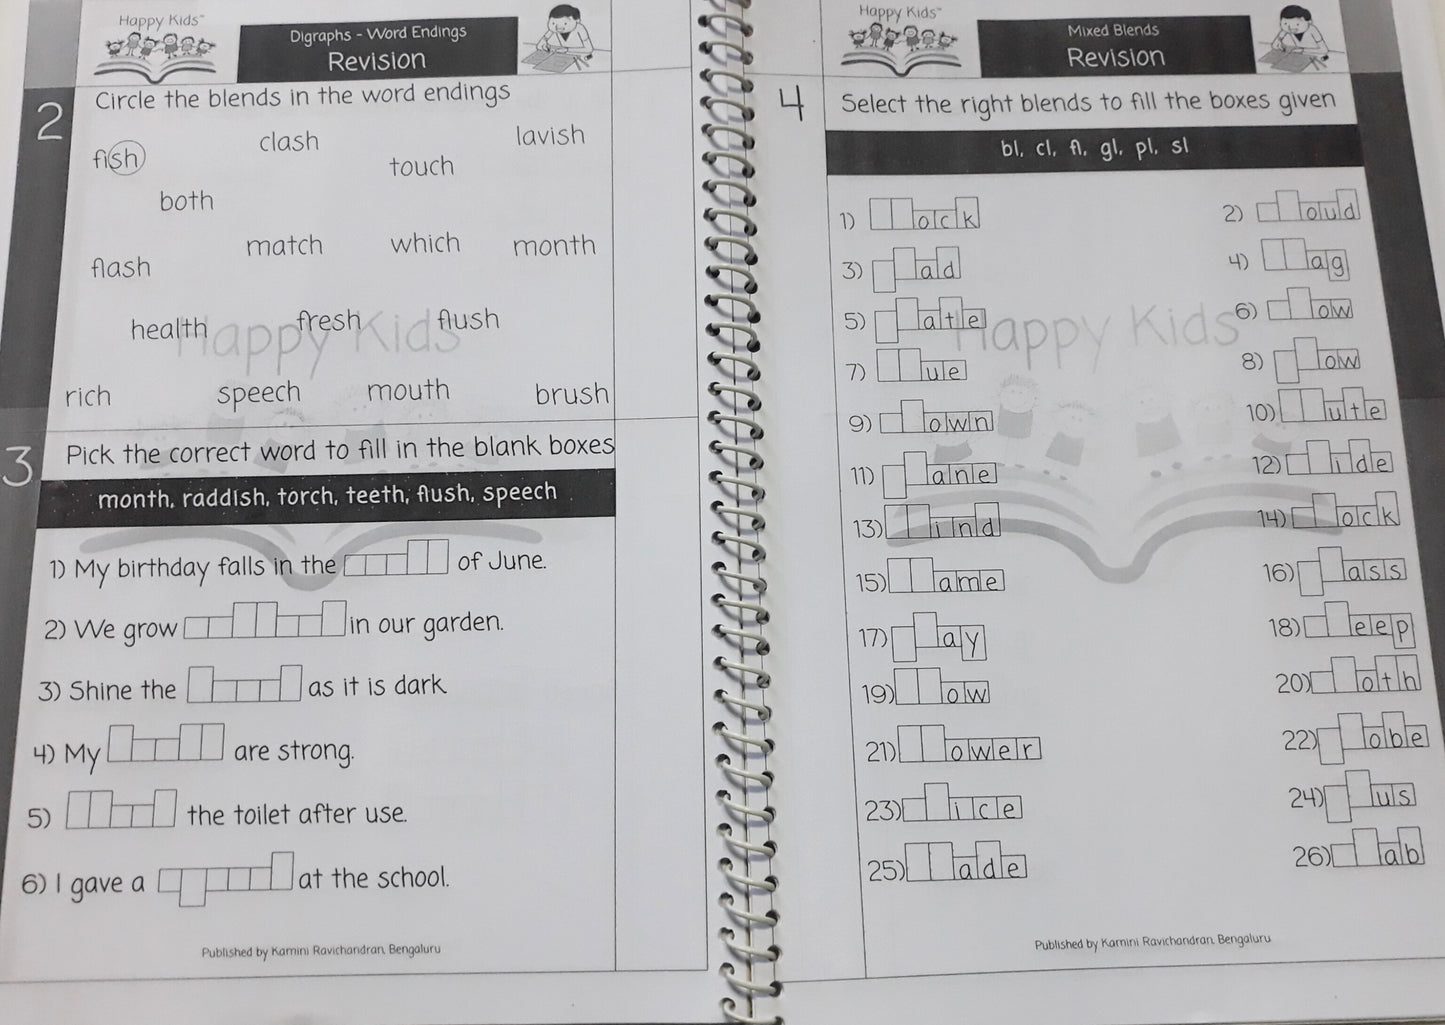 Happy Kids™
Digraphs - Word Endings
Revision
2
Circle the blends in the word endings
fish
clash
lavish
touch
both
match
which
month
flash
health
fresh
flush
Happy Kids
rich
speech
mouth
brush
3
Pick the correct word to fill in the blank boxes
month, raddish, torch, teeth, flush, speech
1) My birthday falls in the of June.
2) We grow in our garden.
3) Shine the as it is dark.
4) My are strong.
5) the toilet after use.
6) I gave a at the school.
Published by Kamini Ravichandran, Bengaluru
Happy Kids™
Mixed Blends
Revision
4
Select the right blends to fill the boxes given
bl, cl, fl, gl, pl, sl
1) ock
2) oud
3) ad
4) ag
5) ate
6) ow
Happy Kids
7) ue
8) ow
9) own
10) ute
11) ane
12) ide
13) ind
14) ock
15) ame
16) ass
17) ay
18) eep
19) ow
20) oth
21) ower
22) obe
23) ice
24) us
25) ade
26) ab
Published by Kamini Ravichandran, Bengaluru